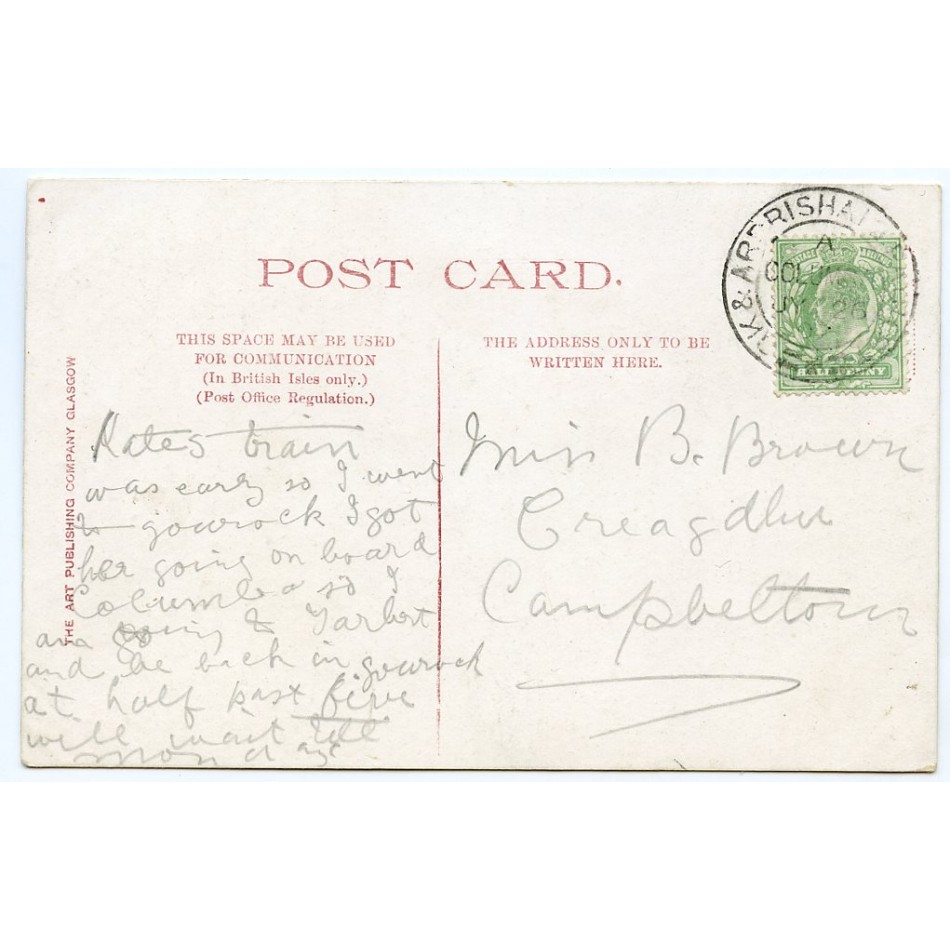 POST CARD.
THIS SPACE MAY BE USED
FOR COMMUNICATION
(In British Isles only.)
(Post Office Regulation.)
THE ADDRESS ONLY TO BE
WRITTEN HERE.
THE ART PUBLISHING COMPANY GLASGOW
Kates train
was early so I went
to gourock I got
her going on board
Columba so I
am going to Tarbert
and be back in gourock
at half past five
will wait till
Monday
Miss B. Brown
Creagdhu
Campbeltown
& ARDRISHAI
A
JY 26
HALFPENNY